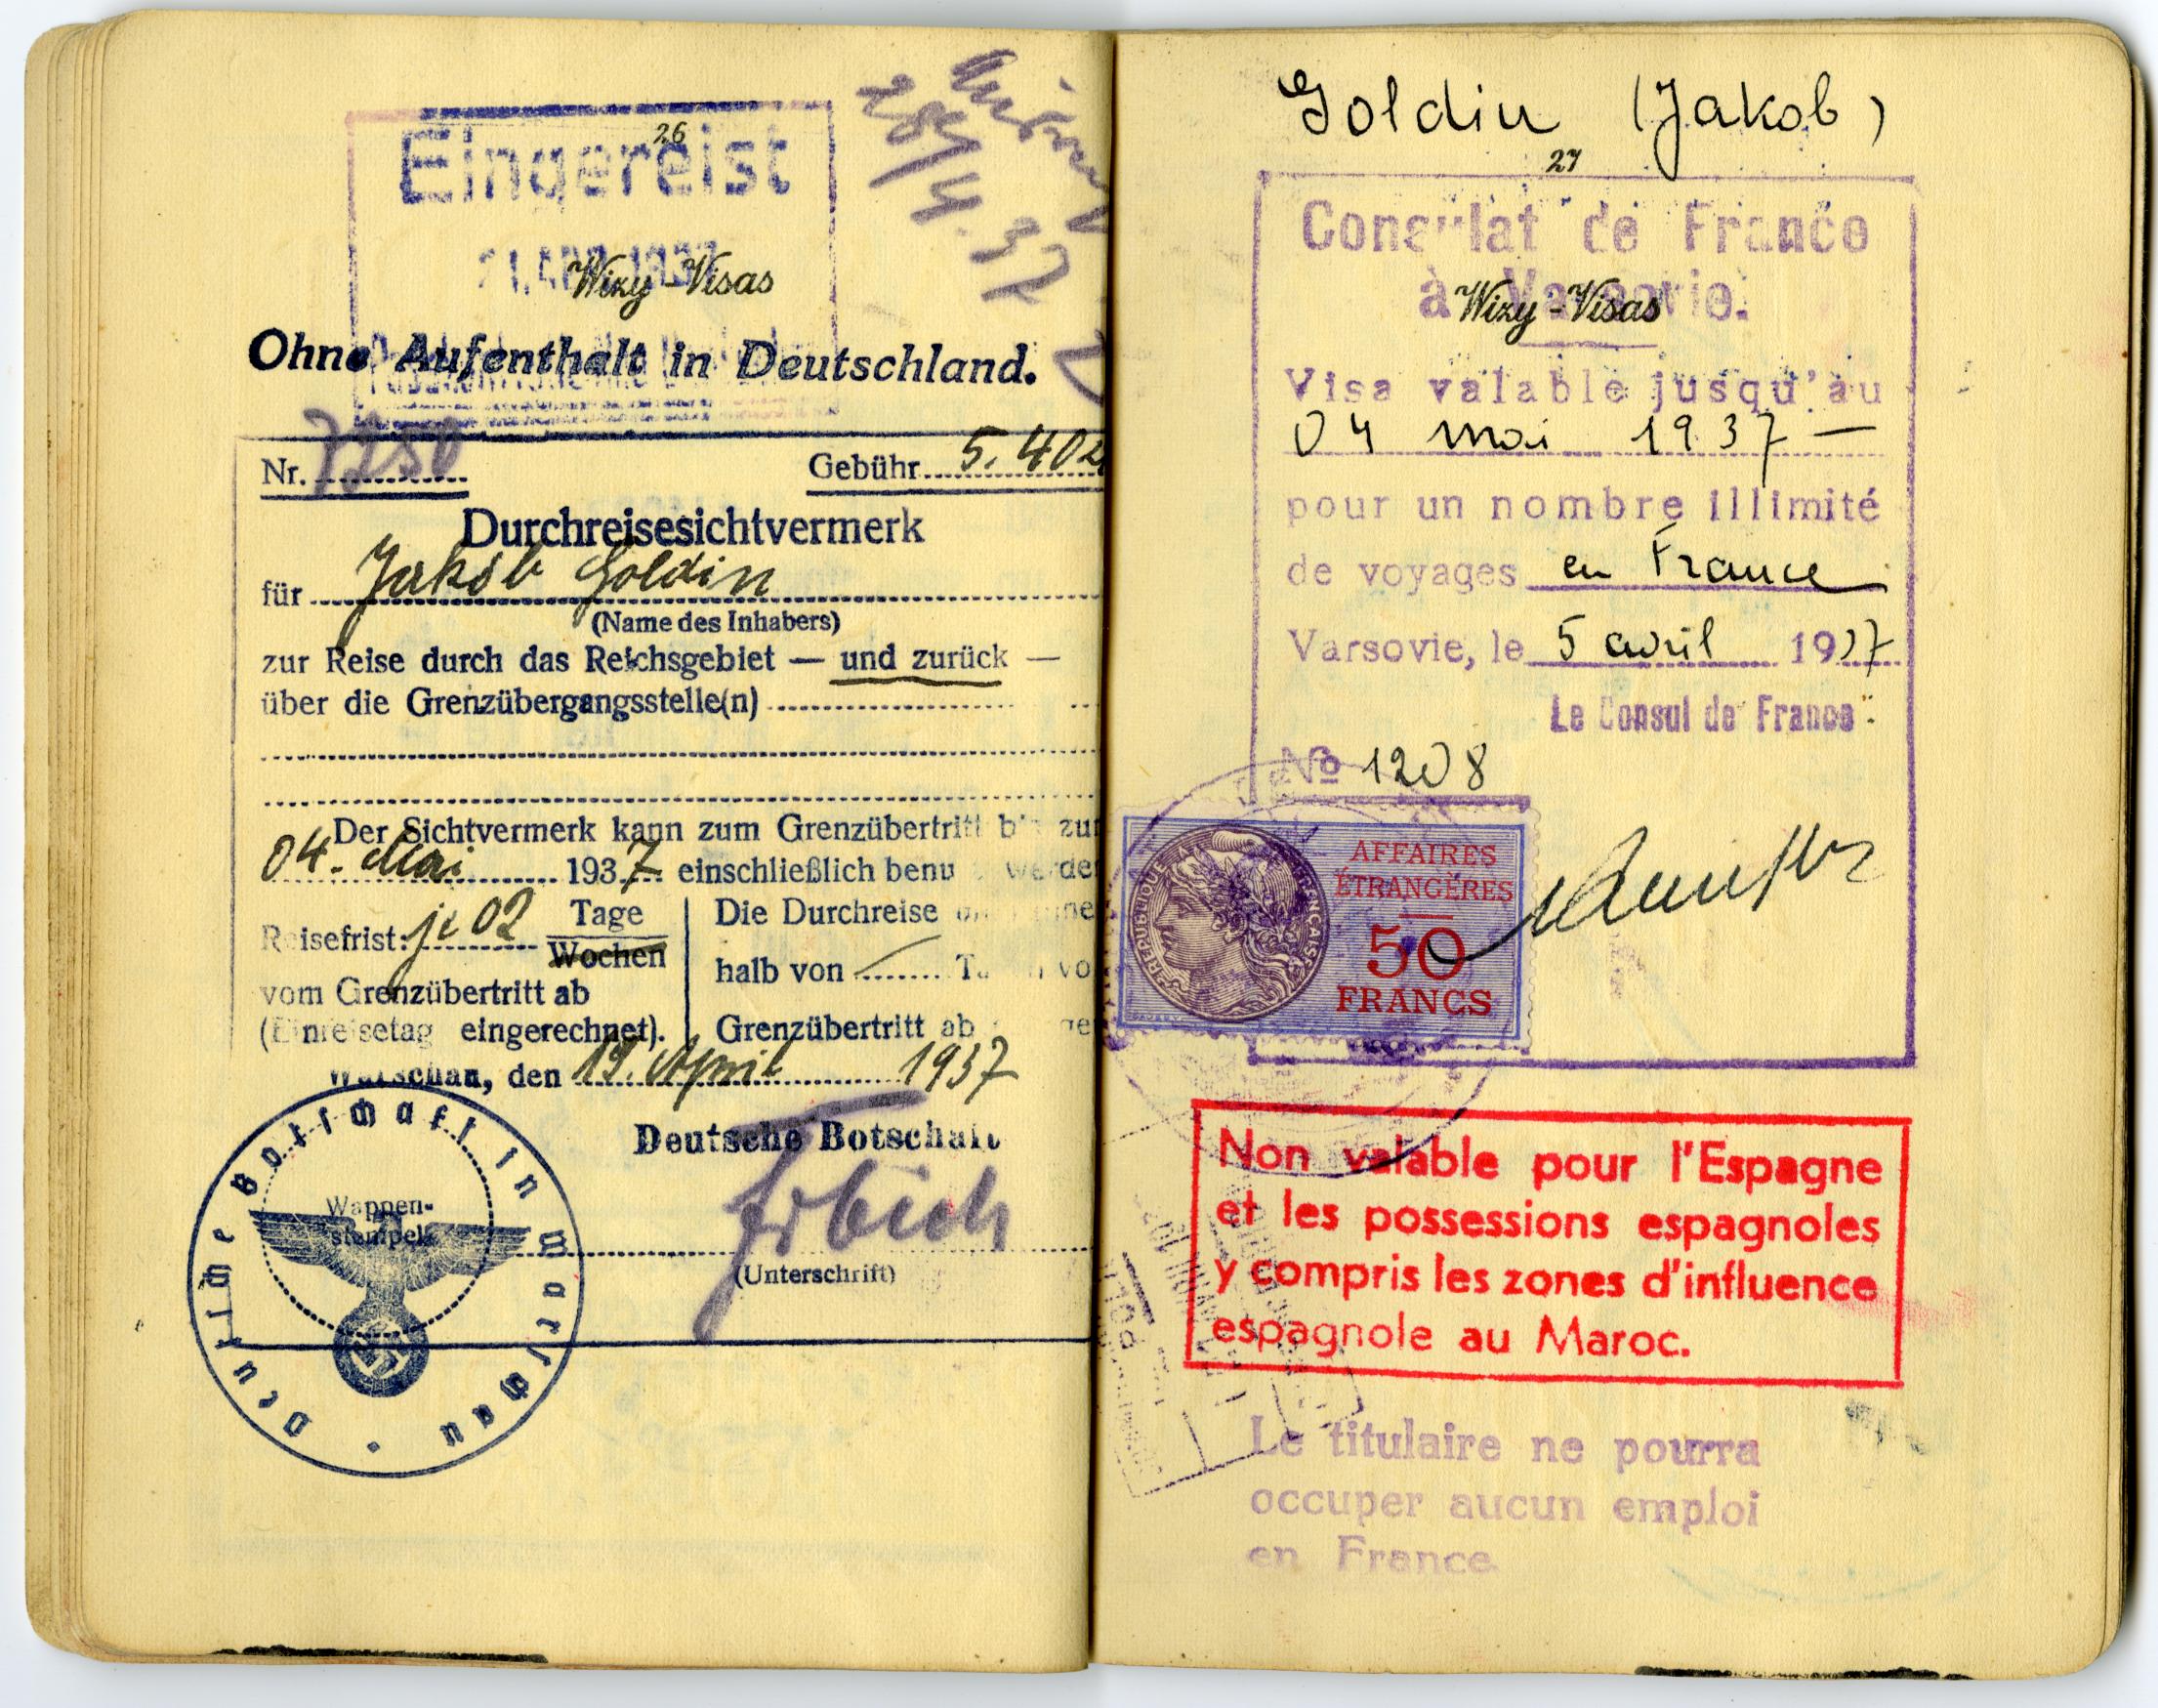 26
Eingereist
Wizy-Visas
Ohne Aufenthalt in Deutschland.
Nr. 7250 Gebühr 5.40
Durchreisesichtvermerk
für Jakób Goldin
(Name des Inhabers)
zur Reise durch das Reichsgebiet — und zurück —
über die Grenzübergangsstelle(n)
Der Sichtvermerk kann zum Grenzübertritt bis zu
04. Mai 1937 einschließlich benu werde
Reisefrist: je 02 Tage
Wochen
vom Grenzübertritt ab
(Einreisetag eingerechnet).
Die Durchreise
halb von
Grenzübertritt ab
Warschau, den 19. April 1937
Deutsche Botschaft
Wappen-
stempel
(Unterschrift)
Deutsche Botschaft in Warschau
Goldin (Jakob)
27
Consulat de France
à Varsovie.
Wizy-Visas
Visa valable jusqu'au
04 mai 1937 —
pour un nombre illimité
de voyages en France
Varsovie, le 5 avril 1937
Le Consul de France
No 1208
REPUBLIQUE FRANÇAISE
AFFAIRES
ÉTRANGÈRES
50
FRANCS
Non valable pour l'Espagne
et les possessions espagnoles
y compris les zones d'influence
espagnole au Maroc.
Le titulaire ne pourra
occuper aucun emploi
en France